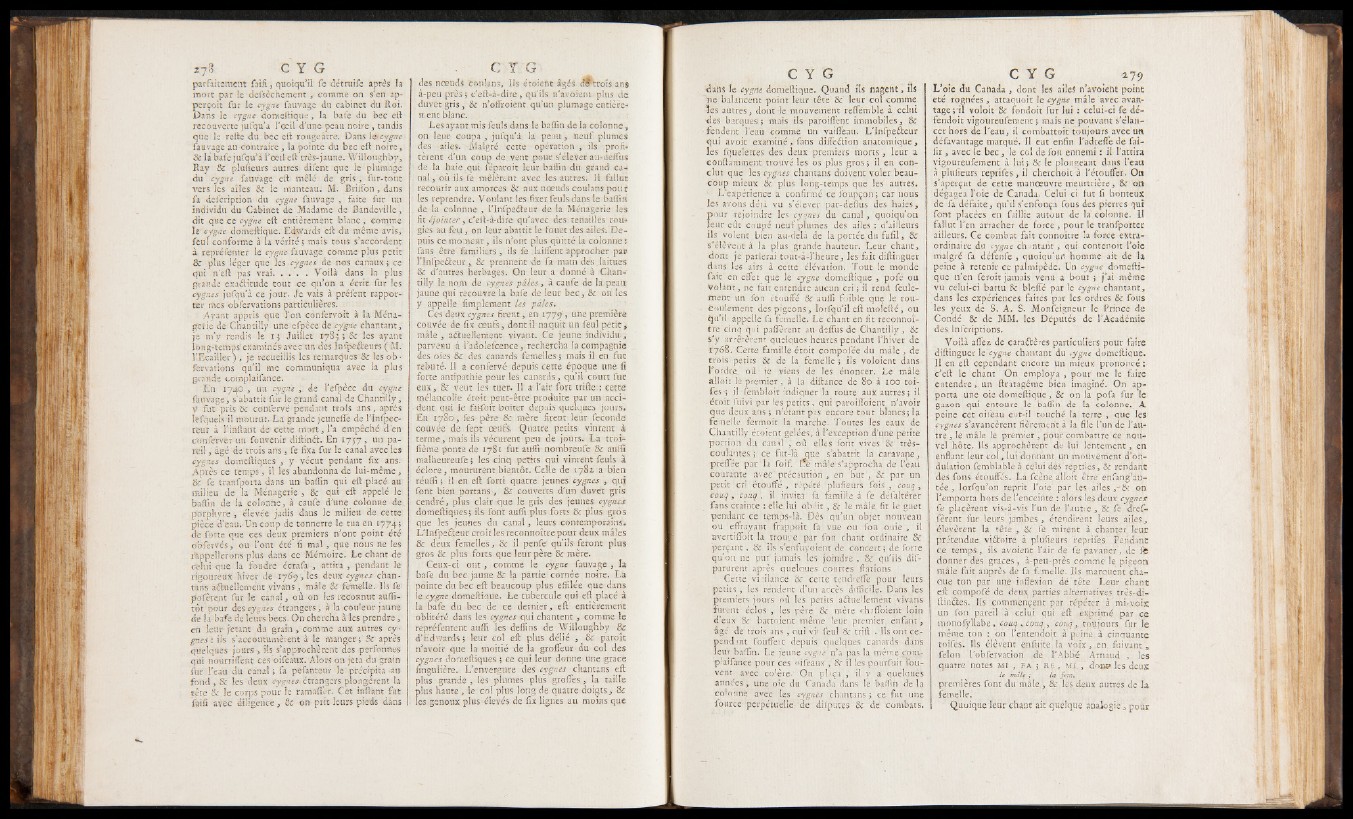 278 C Y G
parfaitement faifi, quoiqu'il fe détruife après la
mort par le defsèchement, comme on s'en ap-
perçoit fur le cygne fauvage du cabinet du Roi.
Dans le cygne domeftique, la bafe du bec eft
recouverte jufqu'à l'œil d'une peau noire, tandis
que le refte du bec eft rougeâtre. Dans le cygne
fauvage au contraire, la pointe du bec eft noire,
& la bafe jufqu'à l'œil eft très-jaune. Willoughby,
Ray & plufieurs autres difent que le plumage
du cygne fauvage eft mêlé de gris, fur-tout
vers les ailes & le manteau. M. Briffon, dans
fa defcription du cygne fauvage, faite fur un
individu du Cabinet de Madame de Bandeville,
dit que ce cygne eft entièrement blanc, comme
le cygne domeftique. Edwards eft du même avis,
feul conforme à la vérité; mais tous s'accordent
à repréfenter le cygne fauvage comme plus petit
& plus léger que les cygnes de nos canaux; ce
qui n'eft pas vrai. . . . . Voilà dans la plus
grande exactitude tout ce qu'on a écrit fur les
cygnes jufqu'à ce jour. Je vais à préfent rappor-
ter mes obfervations particulières.
Ayant appris que l'on confervoit à la Ména-
gerie de Chantilly une efpèce de cygne chantant,
je m'y rendis le 13 Juillet 1783; & les ayant
long-temps examinés avec un des Infpecteurs (M.
l'Ecailler), je recueillis les remarques & les ob-
fervations qu'il me communiqua avec la plus
grande complaifance.
En 1740, un cygne, de l'efpèce du cygne
fauvage, s'abattit fur le grand canal de Chantilly,
y fut pris & confervé pendant trois ans, après
lefquels il mourut. La grande jeuneffe de l'Infpec-
teur à l'inftant de cette mort, l'a empêché d'en
conferver un fouvenir diftinct. En 1757, un pa-
reil, âgé de trois ans, fe fixa fur le canal avec les
cygnes domeftiques, y vécut pendant fix ans.
Après ce temps, il les abandonna de lui-même,
& fe tranfporta dans un baffin qui eft placé au
milieu de la Ménagerie, & qui eft appelé le
baffin de la colonne, à caufe d'une colonne de
porphyre, élevée jadis dans le milieu de cette
pièce d'eau. Un coup de tonnerre le tua en 1774;
de forte que ces deux premiers n'ont point été
obfervés, ou l'ont été fi mal, que nous ne les
rappellerons plus dans ce Mémoire. Le chant de
celui que la foudre écrafa, attira, pendant le
rigoureux hiver de 1769, les deux cygnes chan-
tans actuellement vivans, mâle & femelle. Ils fe
posèrent fur le canal, où on les reconnut auffi-
tôt pour des cygnes étrangers, à la couleur jaune
de la bafe de leurs becs. On chercha à les prendre,
en leur jetant du grain, comme aux autres cy-
gnes: ils s'accoutumèrent à le manger; & après
quelques jours, ils s'approchèrent des perfonnes
qui nourriffent ces oifeaux. Alors on jeta du grain
fur l'eau du canal; fa pefanteur le précipita au
fond, & les deux cygnes étrangers plongèrent la
tête & le corps pour le ramaffer. Cet inftant fut
faifi avec diligence, & on prit leurs pieds dans
C Y G
des nœuds coulans. Ils étoient âgés de trois ans
à-peu-près; c'eft-à-dire, qu'ils n'avoient plus de
duvet gris, & n'offroient qu'un plumage entière-
ment blanc.
Les ayant mis feuls dans le baffin de la colonne,
on leur coupa, jufqu'à la peau, neuf plumes
des ailes. Malgré cette opération, ils profi-
tèrent d'un coup de vent pour s'élever au-deffus
de la haie qui féparoit leur baffin du grand ca-
nal, où ils fe mêlèrent avec les autres. Il fallut
recourir aux amorces & aux nœuds coulans pour
les reprendre. Voulant les fixer feuls dans le baffin
de la colonne, l'Infpecteur de la Ménagerie les
fit éjointer, c'eft-à-dire qu'avec des tenailles rou-
gies au feu, on leur abattit le fouet des ailes. De-
puis ce moment, ils n'ont plus quitté la colonne:
fans être familiers, ils fe laiffent approcher par
l'Infpecteur, & prennent de fa main des laitues
& d'autres herbages. On leur a donné à Chan-
tilly le nom de cygnes pâles, à caufe de la peau
jaune qui recouvre la bafe de leur bec, & on les
y appelle fimplement les pâles.
Ces deux cygnes firent, en 1779, une première
couvée de fix œufs, dont il naquit un feul petit,
mâle, actuellement vivant. Ce jeune individu,
parvenu à l'adolefcence, rechercha la compagnie
des oies & des canards femelles; mais il en fut
rebuté. Il a confervé depuis cette époque une fi
forte antipathie pour les canards, qu'il court fur
eux, & veut les tuer. Il a l'air fort trifte: cette
mélancolie étoit peut-être produite par un acci-
dent qui le faifoit boiter depuis quelques jours.
En 1780, fes père & mère firent leur feconde
couvée de fept œufs. Quatre petits vinrent à
terme, mais ils vécurent peu de jours. La troi-
fième ponte de 1781 fut auffi nombreufe & auffi
malheureufe; les cinq petits qui vinrent feuls à
éclore, moururent bientôt. Celle de 1782 a bien
réuffi; il en eft forti quatre jeunes cygnes, qui
font bien portans, & couverts d'un duvet gris
cendré, plus clair que le gris des jeunes cygnes
domeftiques; ils font auffi plus forts & plus gros
que les jeunes du canal, leurs contemporains.
L'Infpecteur croit les reconnoître pour deux mâles
& deux femelles, & il penfe qu'ils feront plus
gros & plus forts que leur père & mère.
Ceux-ci ont, comme le cygne fauvage, la
bafe du bec jaune & la partie cornée noire. La
pointe du bec eft beaucoup plus effilée que dans
le cygne domeftique. Le tubercule qui eft placé à
la bafe du bec de ce dernier, eft entièrement
oblitéré dans les cygnes qui chantent, comme le
repréfentent auffi les deffins de Willoughby &
d'Edwards; leur col eft plus délié, & paroît
n'avoir que la moitié de la groffeur du col des
cygnes domeftiques; ce qui leur donne une grace
fingulière. L'envergure des cygnes chantans eft
plus grande, les plumes plus groffes, la taille
plus haute, le col plus long de quatre doigts, &
les genoux plus élevés de fix lignes au moins que
C Y G
dans le cygne domeftique. Quand ils nagent, ils
ne balancent point leur tête & leur col comme
les autres, dont le mouvement reffemble à celui
des barques; mais ils paroiffent immobiles, &
fendent l'eau comme un vaiffeau. L'Infpecteur
qui avoit examiné, fans diffection anatomique,
les fquelettes des deux premiers morts, leur a
conftamment trouvé les os plus gros; il en con-
clut que les cygnes chantans doivent voler beau-
coup mieux & plus long-temps que les autres.
L'expérience a confirmé ce foupçon; car nous
les avons déjà vu s'élever par-deffus des haies,
pour rejoindre les cygnes du canal, quoiqu'on
leur eût coupé neuf plumes des ailes: d'ailleurs
ils volent bien au-delà de la portée du fufil, &
s'élèvent à la plus grande hauteur. Leur chant,
dont je parlerai tout-à-l'heure, les fait diftinguer
dans les airs à cette élévation. Tout le monde
fait en effet que le cygne domeftique, pofé ou
volant, ne fait entendre aucun cri; il rend feule-
ment un fon étouffé & auffi foible que le rou-
coulement des pigeons, lorfqu'il eft molefté, ou
qu'il appelle fa femelle. Le chant en fit reconnoî-
tre cinq qui paffèrent au-deffus de Chantilly, &
s'y arrêtèrent quelques heures pendant l'hiver de
1768. Cette famille étoit compofée du mâle, de
trois petits & de la femelle; ils voloient dans
l'ordre où je viens de les énoncer. Le mâle
alloit le premier, à la diftance de 80 à 100 toi-
fes; il fembloit indiquer la route aux autres; il
étoit fuivi par les petits, qui paroiffoient n'avoir
que deux ans; n'étant pas encore tout blancs; la
femelle fermoit la marche. Toutes les eaux de
Chantilly étoient gelées, à l'exception d'une petite
portion du canal, où elles font vives & très-
coulantes; ce fut-là que s'abattit la caravane,
preffée par la foif. Le mâle s'approcha de l'eau
courante avec précaution, en but, & par un
petit cri étouffé, répété plufieurs fois, couq,
couq, couq, il invita fa famille à fe défaltérer
fans crainte: elle lui obéit, & le mâle fit le guet
pendant ce temps-là. Dès qu'un objet nouveau
ou effrayant frappoit fa vue ou fon ouie, il
avertiffoit la troupe par fon chant ordinaire &
perçant, & ils s'enfuyoient de concert; de forte
qu'on ne put jamais les joindre, & qu'ils dif-
parurent après quelques courtes ftations.
Cette vigilance & cette tendreffe pour leurs
petits, les rendent d'un accès difficile. Dans les
premiers jours où les petits actuellement vivans
furent éclos, les père & mère chaffoient loin
d'eux & battoient même leur premier enfant,
âgé de trois ans, qui vit feul & trifte. Ils ont ce-
pendant fouffert depuis quelques canards dans
leur baffin. Le jeune cygne n'a pas la même com-
plaifance pour ces oifeaux, & il les pourfuit fou-
vent avec colère. On plaça, il y a quelques
années, une oie du Canada dans le baffin de la
colonne avec les cygnes chantans; ce fut une
fource perpétuelle de difputes & de combats.
C Y G 279
L'oie du Canada, dont les ailes n'avoient point
été rognées, attaquoit le cygne mâle avec avan-
tage; il voloit & fondoit fur lui: celui-ci fe dé-
fendoit vigoureufement; mais ne pouvant s'élan-
cer hors de l'eau, il combattoit toujours avec un
défavantage marqué. Il eut enfin l'adreffe de fai-
fir, avec le bec, le col de fon ennemi: il l'attira
vigoureufement à lui; & le plongeant dans l'eau
à plufieurs reprifes, il cherchoit à l'étouffer. On
s'aperçut de cette manœuvre meurtrière, & on
dégagea l'oie de Canada. Celui ci fut fi honteux
de fa défaite, qu'il s'enfonça fous des pierres qui
font placées en faillie autour de la colonne. Il
fallut l'en arracher de force, pour le tranfporter
ailleurs. Ce combat fait connoître la force extra-
ordinaire du cygne chantant, qui contenoit l'oie
malgré fa défenfe, quoiqu'un homme ait de la
peine à retenir ce palmipède. Un cygne domefti-
que n'en feroit jamais venu à bout; j'ai même
vu celui-ci battu & bleffé par le cygne chantant,
dans les expériences faites par les ordres & fous
les yeux de S. A. S. Monfeigneur le Prince de
Condé & de MM. les Députés de l'Académie
des Infcriptions.
Voilà affez de caractères particuliers pour faire
diftinguer le cygne chantant du cygne domeftique.
Il en eft cependant encore un mieux prononcé:
c'eft le chant. On employa, pour me le faire
entendre, un ftratagême bien imaginé. On ap-
porta une oie domeftique, & on la pofa fur le
gazon qui entoure le baffin de la colonne. A
peine cet oifeau eut-il touché la terre, que les
cygnes s'avancèrent fièrement à la file l'un de l'au-
tre, le mâle le premier, pour combattre ce nou-
vel hôte. Ils approchèrent de lui lentement, en
enflant leur col, lui donnant un mouvement d'on-
dulation femblable à celui des reptiles, & rendant
des fons étouffés. La fcène alloit être enfanglan-
tée, lorfqu'on reprit l'oie par les ailes, & on
l'emporta hors de l'enceinte: alors les deux cygnes
fe placèrent vis-à-vis l'un de l'autre, & fe dref-
fèrent fur leurs jambes, étendirent leurs ailes,
élevèrent la tête, & fe mirent à chanter leur
prétendue victoire à plufieurs reprifes. Pendant
ce temps, ils avoient l'air de fe pavaner, de fe
donner des graces, à-peu-près comme le pigeon
mâle fait auprès de fa femelle. Ils marquent cha-
que ton par une inflexion de tête. Leur chant
eft compofé de deux parties alternatives très-di-
ftinctes. Ils commencent par répéter à mi-voix
un fon pareil à celui qui eft exprimé par ce
monofyllabe, couq, couq, couq, toujours fur le
même ton: on l'entendoit à peine à cinquante
toifes. Ils élèvent enfuite la voix, en fuivant,
felon l'obfervation de l'Abbé Arnaud, les
quatre notes MI, FA; RE, MI, dont les deux
le mâle; la fem.
premières font du mâle, & les deux autres de la
femelle.
Quoique leur chant ait quelque analogie, pour